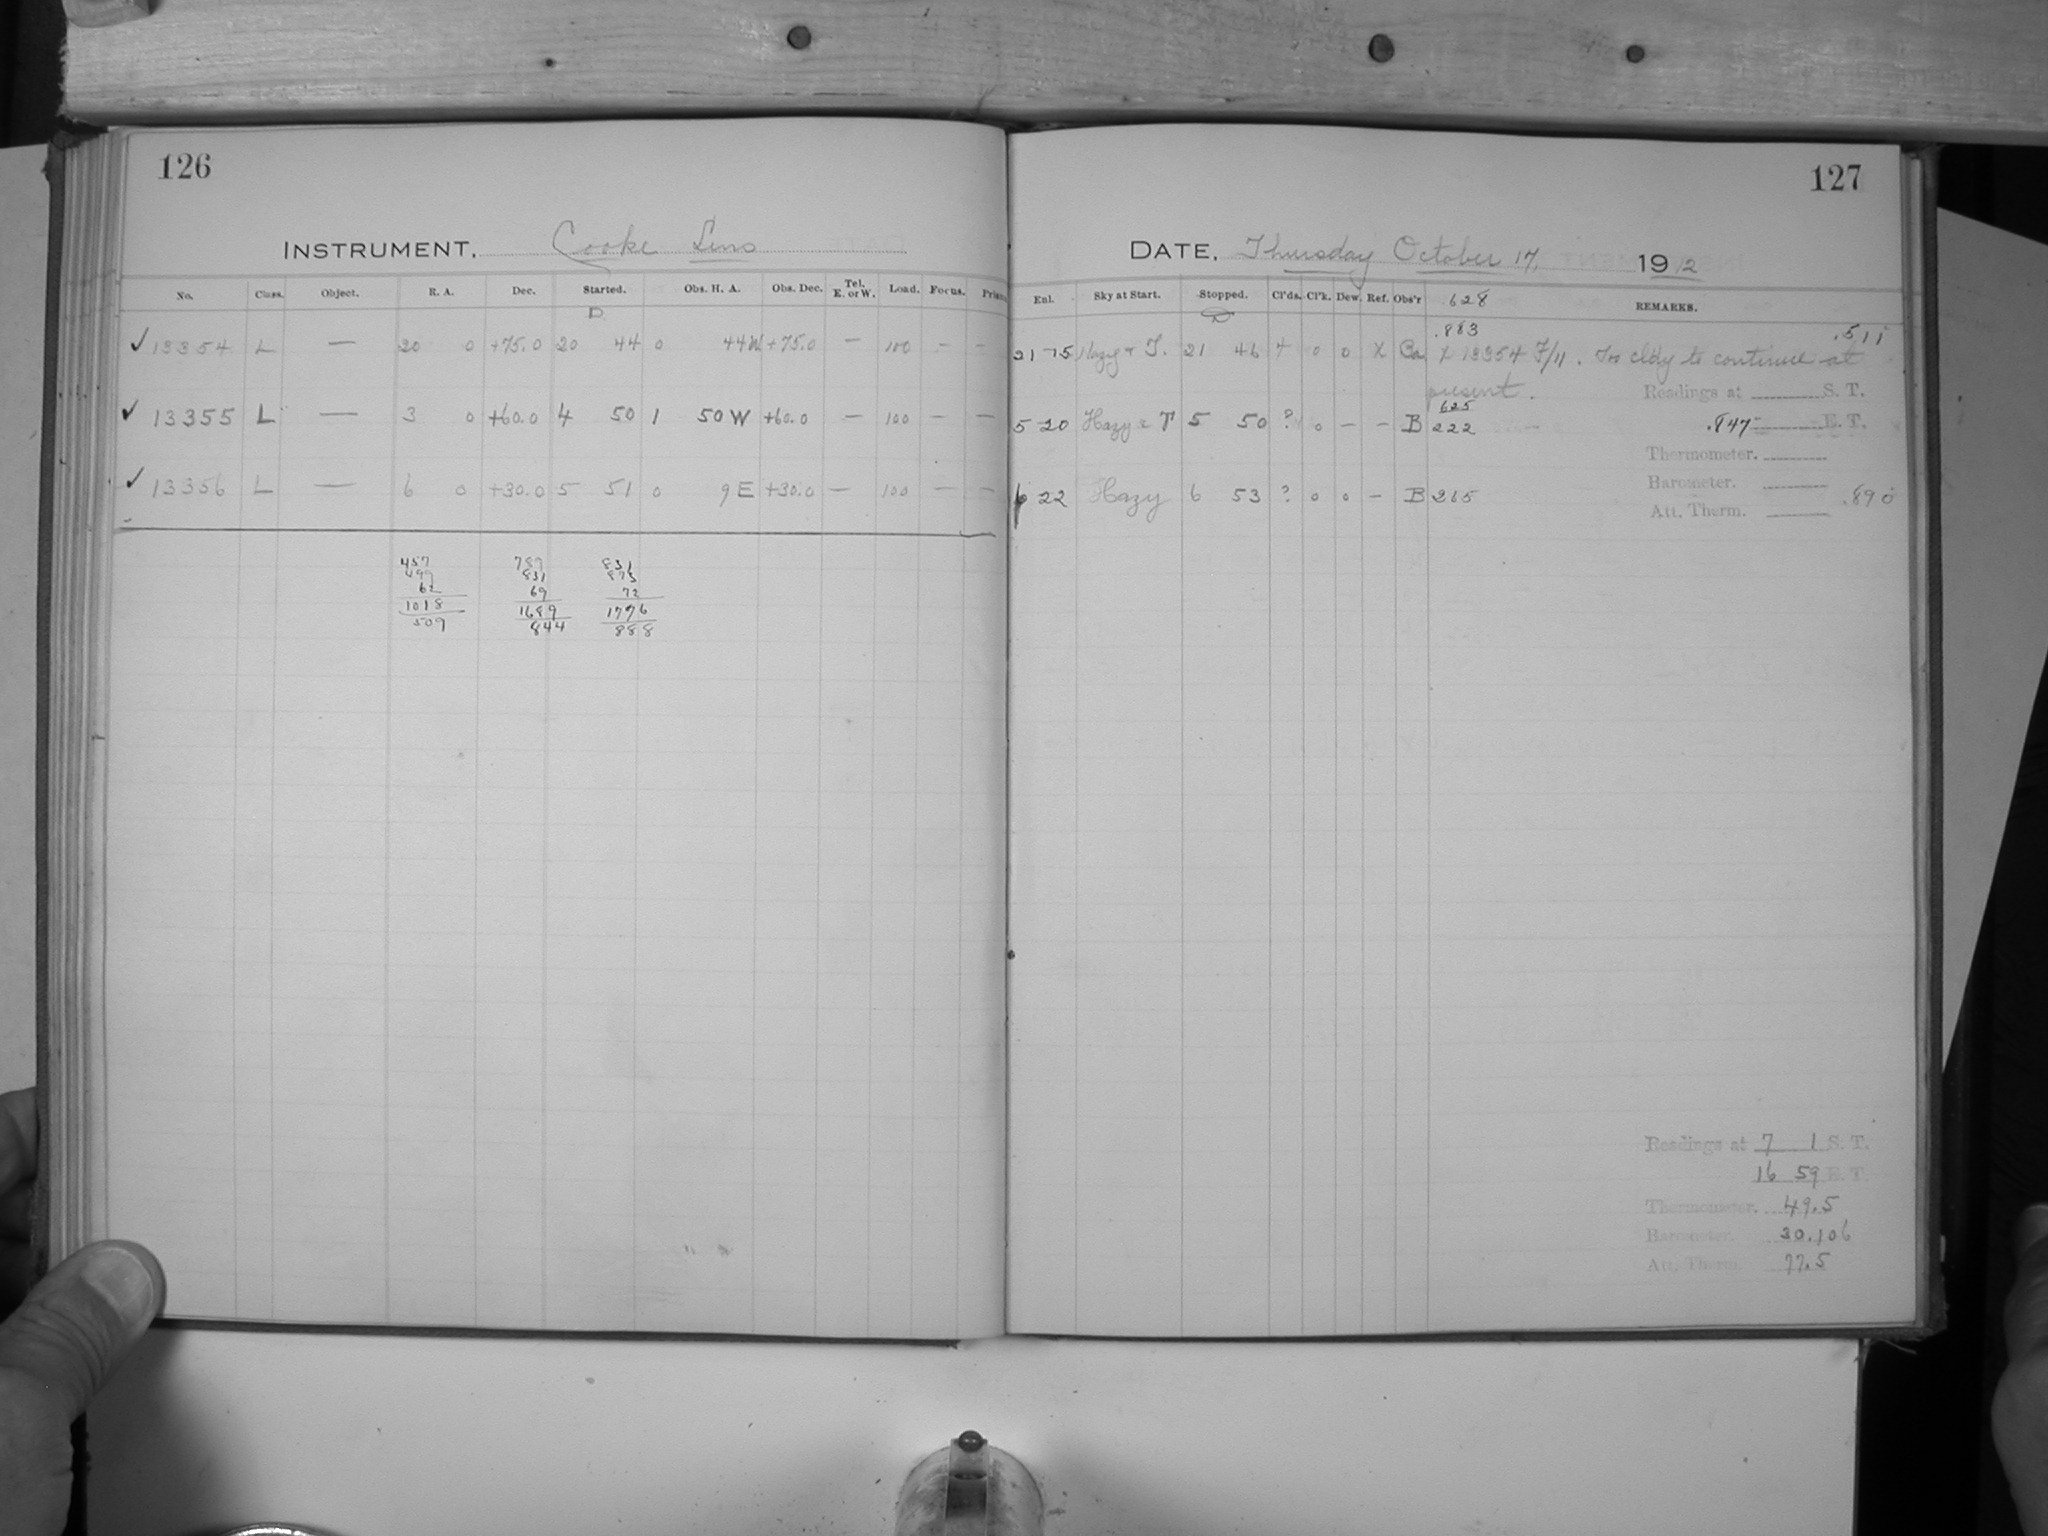 126
INSTRUMENT. Cooke Lens
No. Class. Object. R. A. Dec. Started. Obs. H. A. Obs. Dec. Tel. E. or W. Load. Focus.
D
✓ 13354 L — 20 0 +75.0 20 44 0 44W +75.0 — 100 – –
✓ 13355 L — 3 0 +60.0 4 50 1 50 W +60.0 — 100 — —
✓ 13356 L — 6 0 +30.0 5 51 0 9 E +30.0 — 100 — —
457 787 831
499 831 873
62 69 72
1018 1689 1776
509 844 888
127
DATE. Thursday October 17, 1912
Enl. Sky at Start. Stopped. Cl'ds. Cl'k. Dew. Ref. Obs'r .628 REMARKS.
D .883 .511
21 15 Hazy & T. 21 46 + 0 0 X Ca X 13354 F/11. Too cldy to continue at
present. Readings at S. T.
625
5 20 Hazy & T 5 50 ? 0 – – B 222 – .847 E. T.
Thermometer.
Barometer.
6 22 Hazy 6 53 ? 0 0 – B 265 .890
Att. Therm.
Readings at 7 1 S. T.
16 59 E. T.
Thermometer. 49.5
Barometer. 30.106
Att. Therm. 77.5